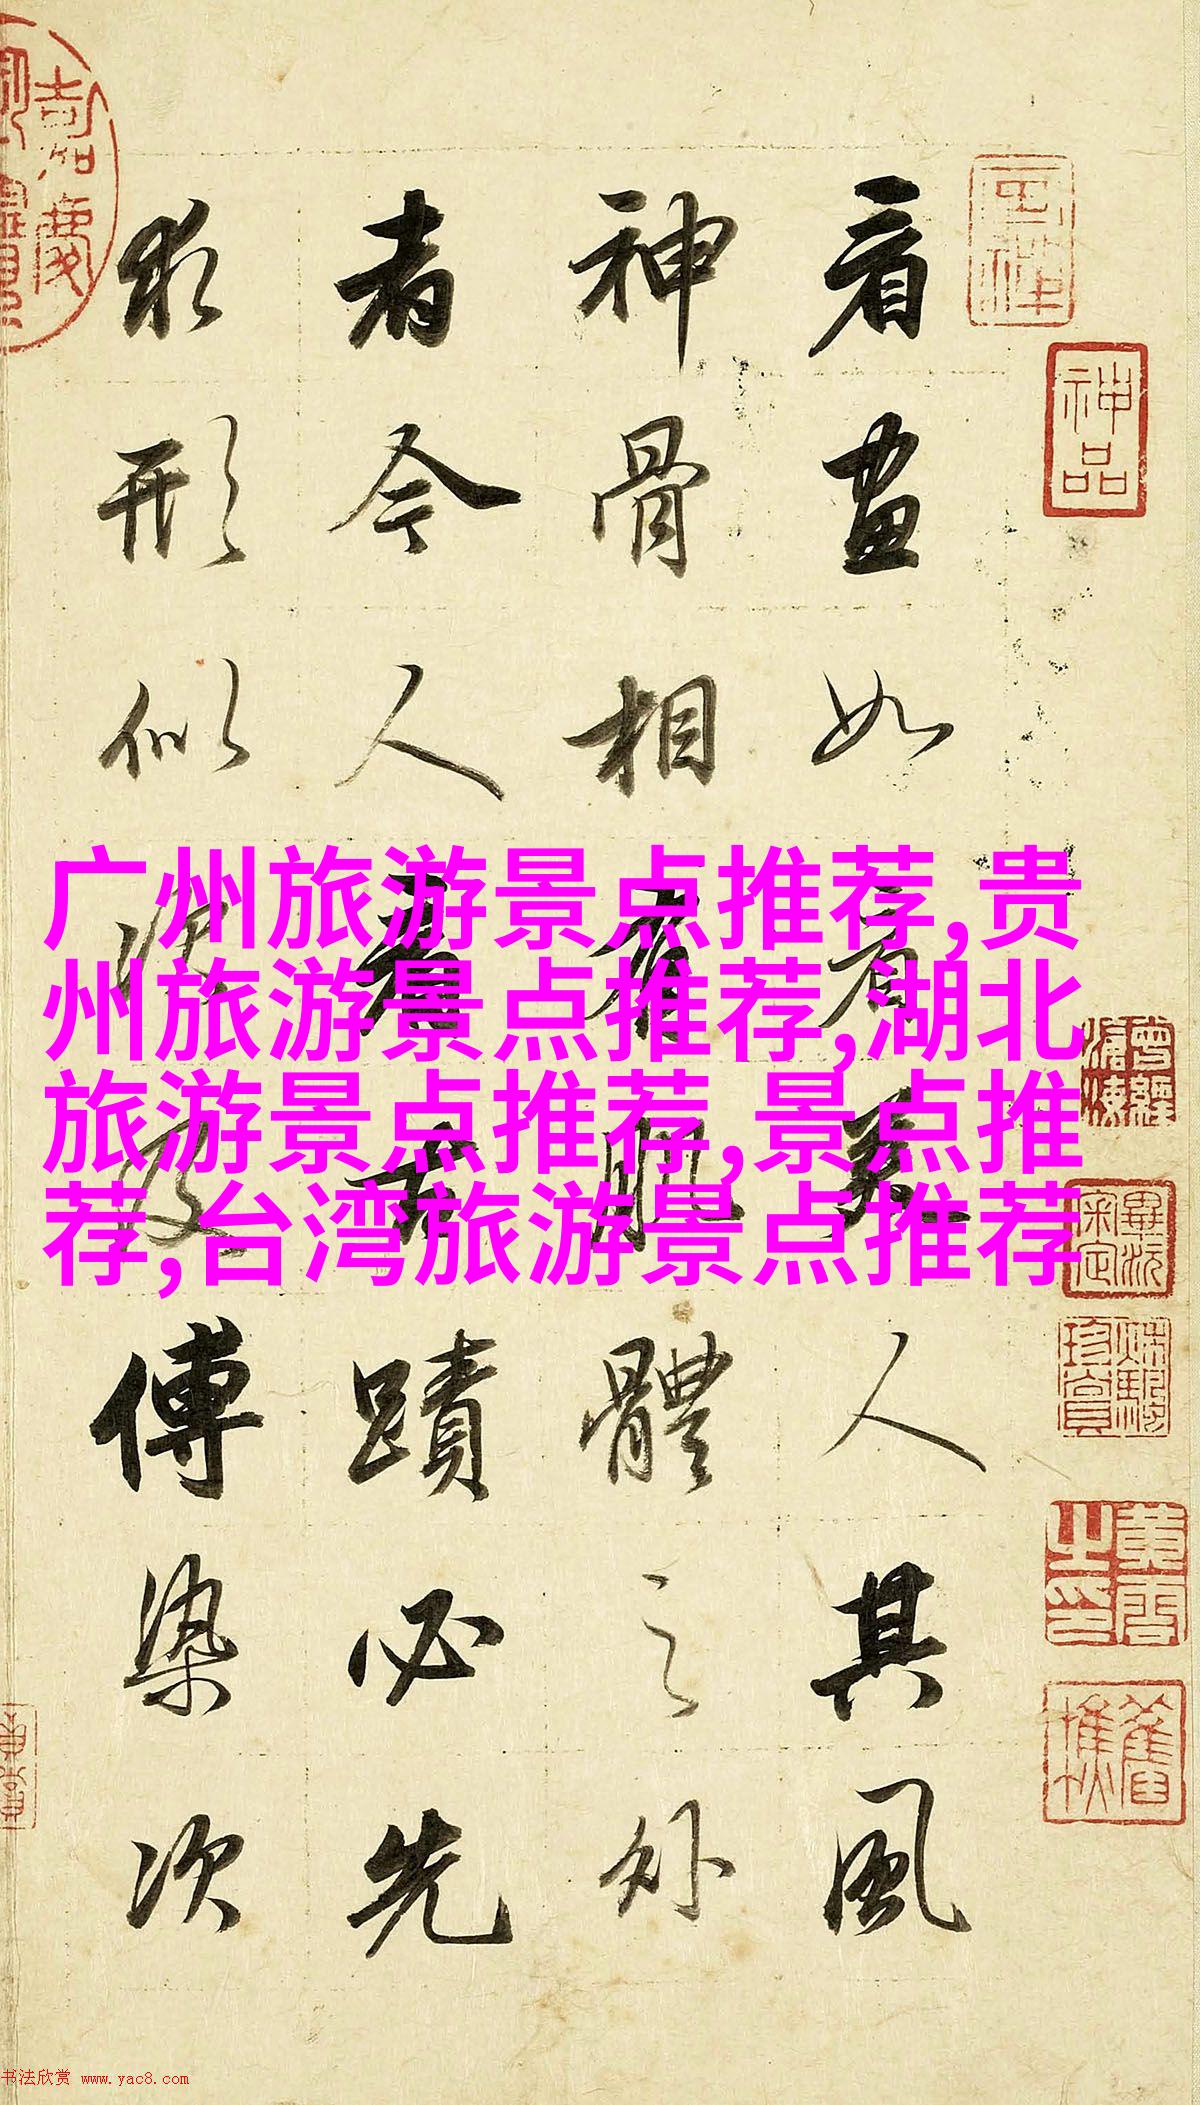 看畫如看美人其風
神骨相有肌體之外
者今人看古蹟必先
求形似次及傅染次
广州旅游景点推荐,贵
州旅游景点推荐,湖北
旅游景点推荐,景点推
荐,台湾旅游景点推荐
神品
嘉慶
书法欣赏 www.yac8.com